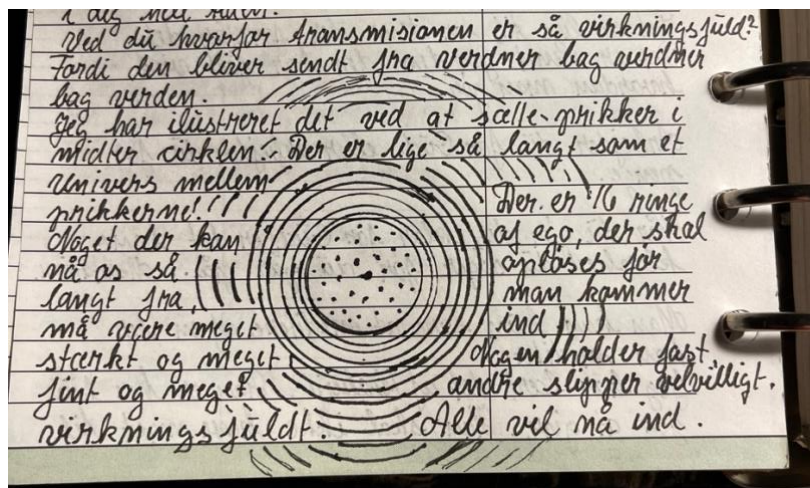 i dig
Ved du hvorfor transmisionen er så virkningsfuld?
Fordi den bliver sendt fra verdner bag verdner
bag verden.
Jeg har ilustreret det ved at sætte prikker i
midter cirklen. Der er lige så langt som et
univers mellem
prikkerne!
Noget der kan
nå os så
langt fra,
må være meget
stærkt og meget
fint og meget
virkningsfuldt.
Der er 16 ringe
af ego, der skal
opløses før
man kommer
ind
Nogen holder fast,
andre slipper velvilligt.
Alle vil nå ind.